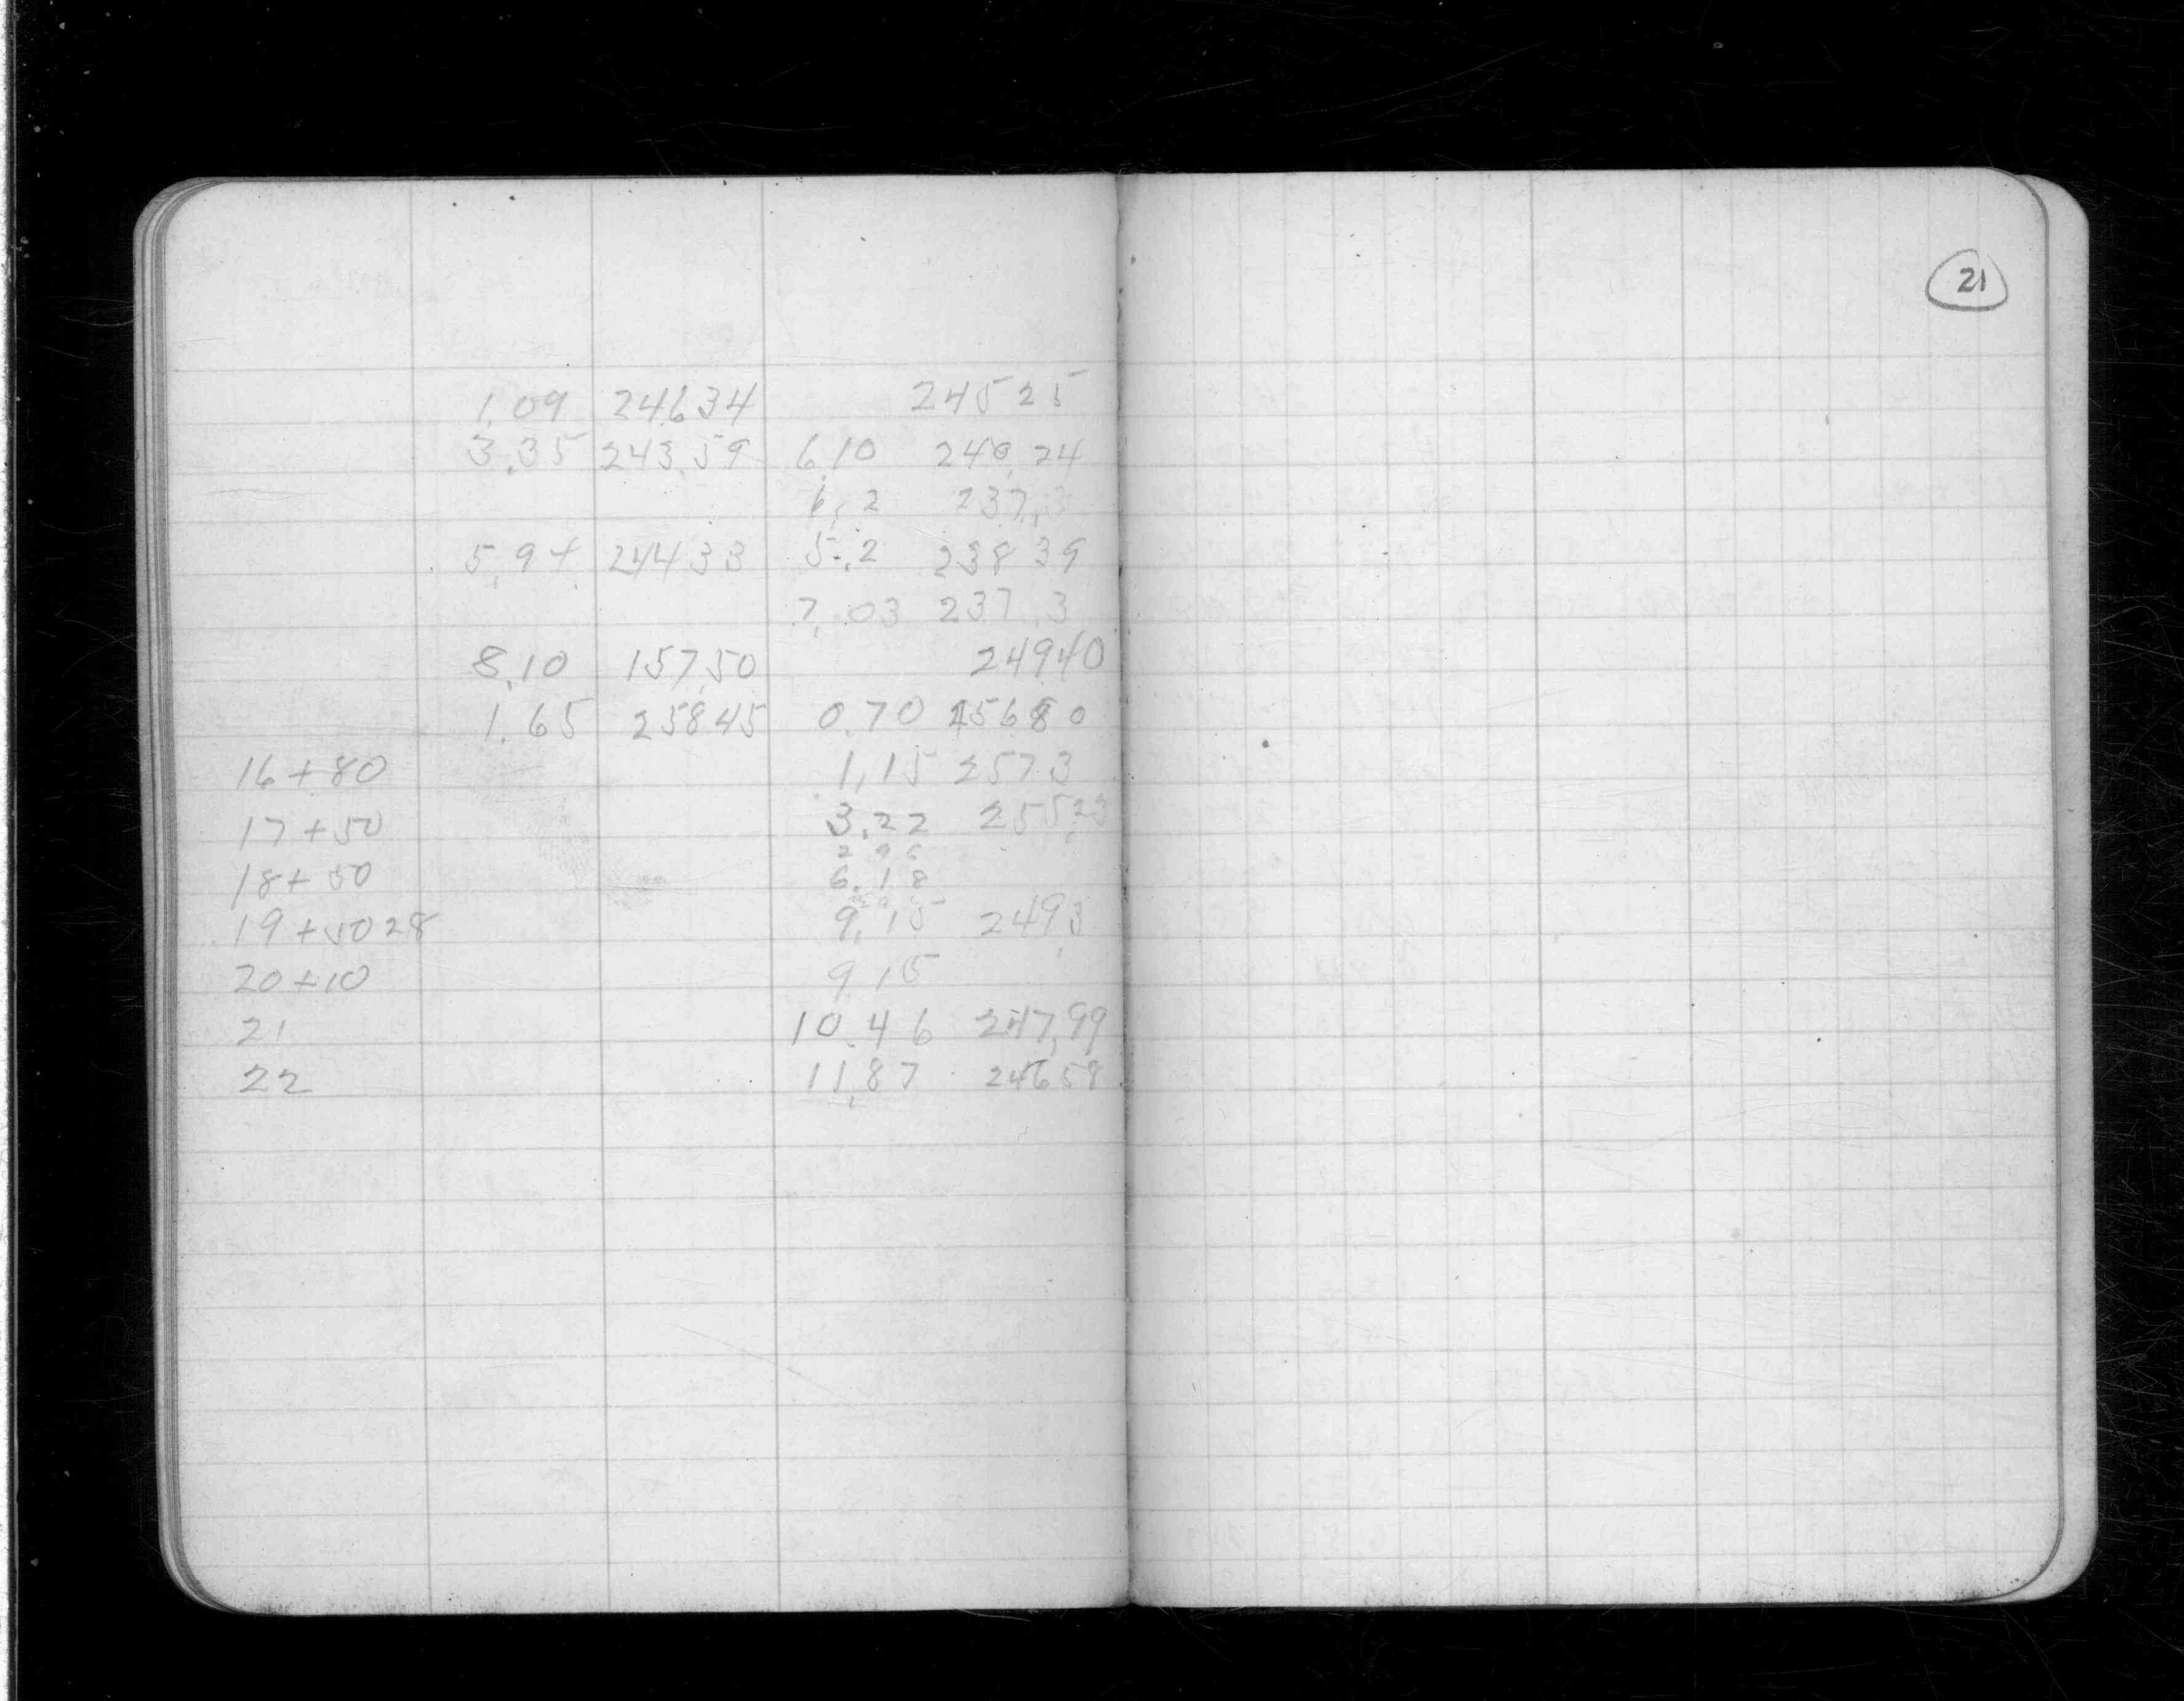 21
1.09 246.34 245 25
3.35 243.59 6.10 240.24
6.2 237.3
5.94 244 33 5.2 238 39
7.03 237.3
8.10 157.50 249 40
1.65 258 45 0.70 256 80
16+80 1.15 257.3
17+50 3.22 255.23
2 96
18+50 6.18
19+50 28 9.15 249.3
20+10 9.15
21 10.46 247.99
22 11.87 246 58